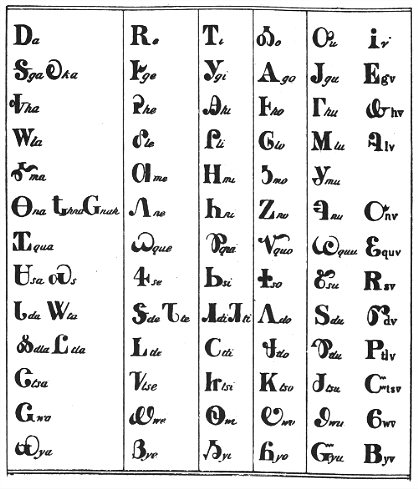 Ꭰa Ꭱe Ꭲi Ꭳo Ꭴu Ꭵv
Ꭶga Ꭷka Ꭸge Ꭹgi Ꭺgo Ꭻgu Ꭼgv
Ꭽha Ꭾhe Ꭿhi Ꮀho Ꮁhu Ꮂhv
Ꮃla Ꮄle Ꮅli Ꮆlo Ꮇlu Ꮈlv
Ꮉma Ꮊme Ꮋmi Ꮌmo Ꮍmu
Ꮎna Ꮏhna Ꮐnah Ꮑne Ꮒni Ꮓno Ꮔnu Ꮕnv
Ꮖqua Ꮗque Ꮘqui Ꮙquo Ꮚquu Ꮛquv
Ꮜsa Ꮝs Ꮞse Ꮟsi Ꮠso Ꮡsu Ꮢsv
Ꮣda Ꮤta Ꮥde Ꮦte Ꮧdi Ꮨti Ꮩdo Ꮪdu Ꮫdv
Ꮬdla Ꮭtla Ꮮtle Ꮯtli Ꮰtlo Ꮱtlu Ꮲtlv
Ꮳtsa Ꮴtse Ꮵtsi Ꮶtso Ꮷtsu Ꮸtsv
Ꮹwa Ꮺwe Ꮻwi Ꮼwo Ꮽwu Ꮾwv
Ꮿya Ᏸye Ᏹyi Ᏺyo Ᏻyu Ᏼyv